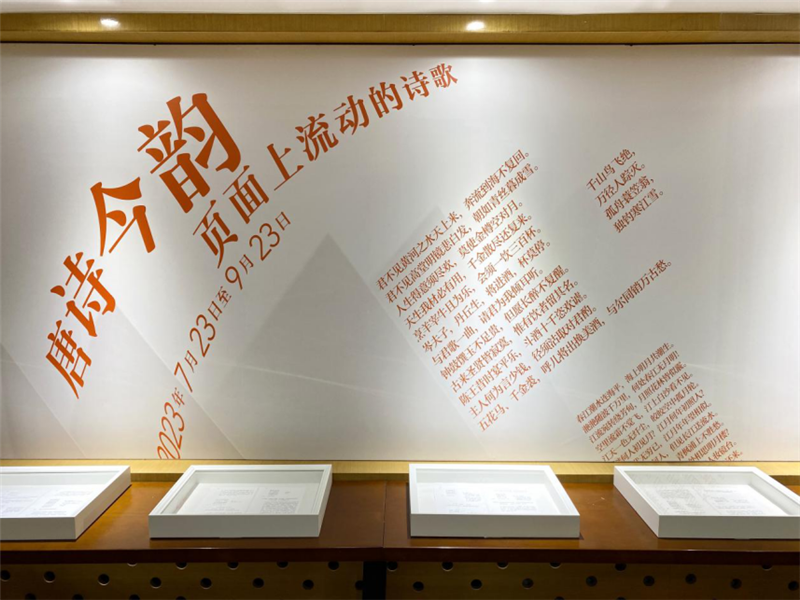 唐诗今韵
页面上流动的诗歌
2023年7月23日至9月23日
君不见黄河之水天上来，奔流到海不复回。
君不见高堂明镜悲白发，朝如青丝暮成雪。
人生得意须尽欢，莫使金樽空对月。
天生我材必有用，千金散尽还复来。
烹羊宰牛且为乐，会须一饮三百杯。
岑夫子，丹丘生，将进酒，杯莫停。
与君歌一曲，请君为我倾耳听。
钟鼓馔玉不足贵，但愿长醉不复醒。
古来圣贤皆寂寞，惟有饮者留其名。
陈王昔时宴平乐，斗酒十千恣欢谑。
主人何为言少钱，径须沽取对君酌。
五花马，千金裘，呼儿将出换美酒，与尔同销万古愁。
千山鸟飞绝，
万径人踪灭。
孤舟蓑笠翁，
独钓寒江雪。
春江潮水连海平，海上明月共潮生。
滟滟随波千万里，何处春江无月明！
江流宛转绕芳甸，月照花林皆似霰。
空里流霜不觉飞，汀上白沙看不见。
江天一色无纤尘，皎皎空中孤月轮。